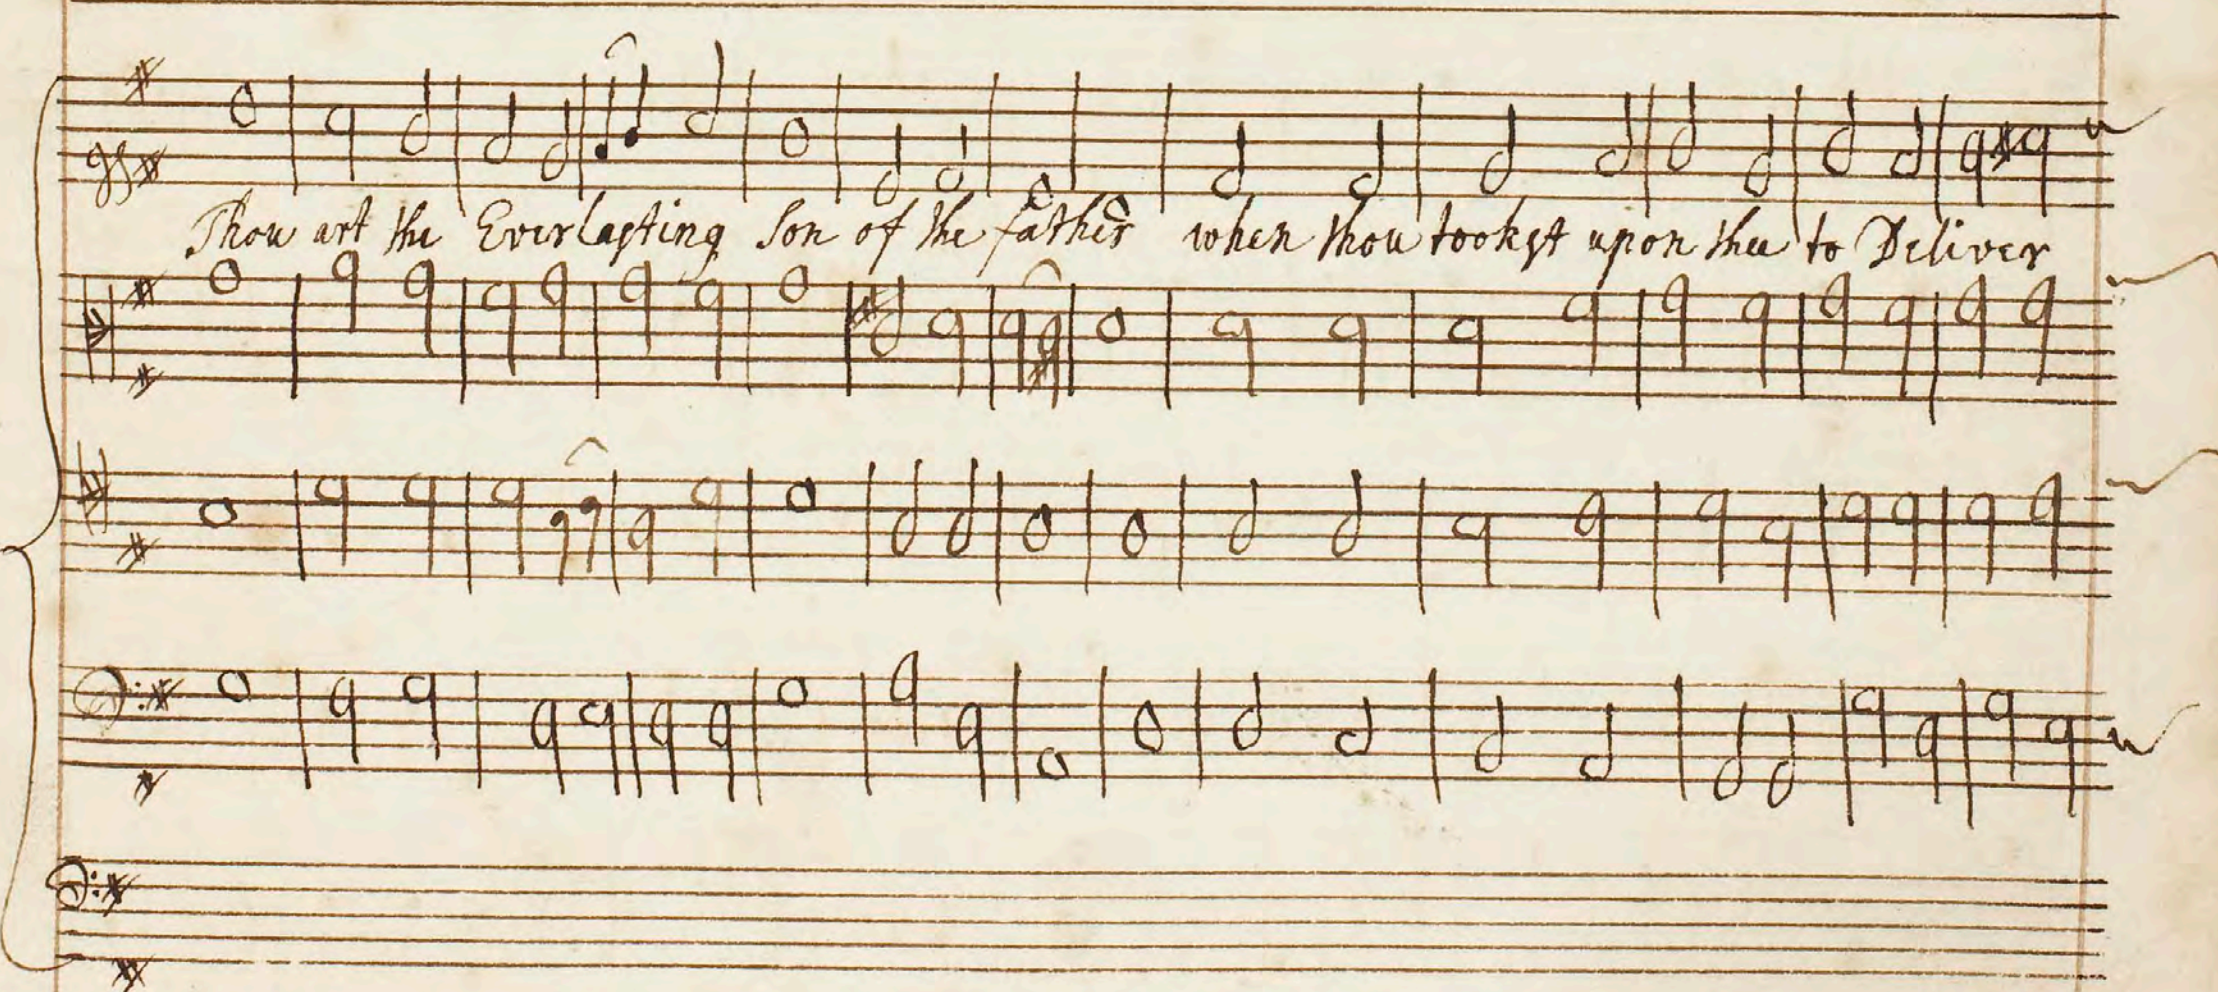 Thou art the Everlasting Son of the father when thou tookst upon thee to Deliver